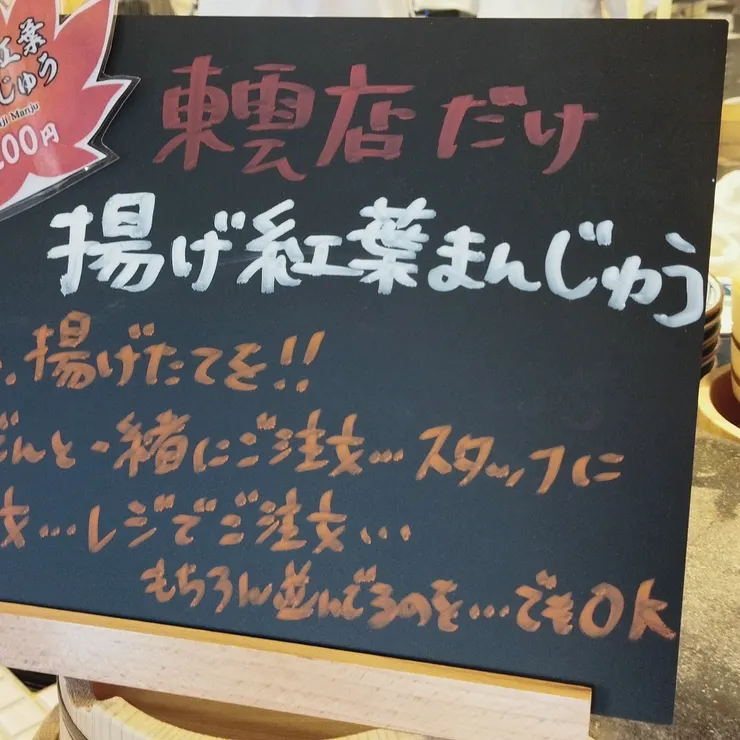 紅葉
じゅう
ji Manju
200円
東雲店だけ
揚げ紅葉まんじゅう
..揚げたてを!!
どんと一緒にご注文…スタッフに
文…レジでご注文…
もちろん並んでるのを…でもOK